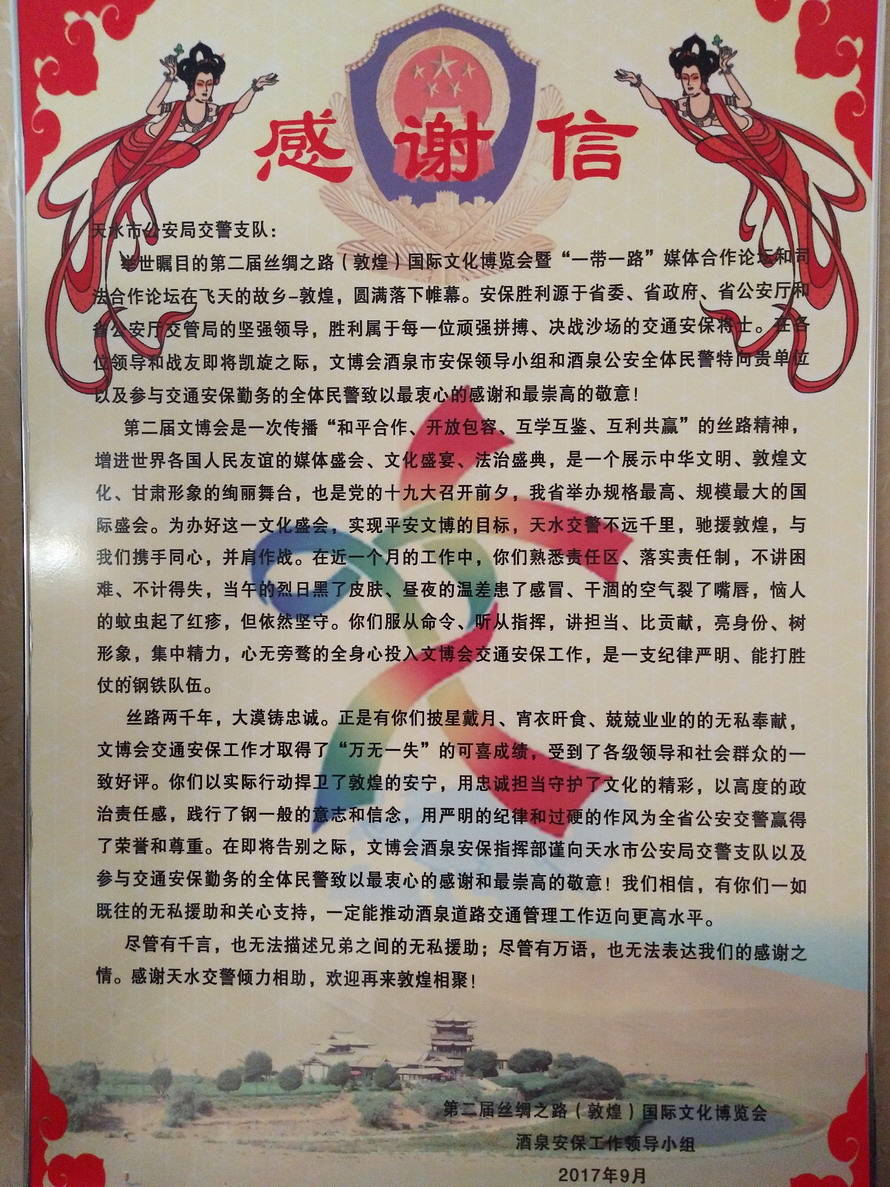 感谢信
天水市公安局交警支队：
举世瞩目的第二届丝绸之路（敦煌）国际文化博览会暨“一带一路”媒体合作论坛和司
法合作论坛在飞天的故乡-敦煌，圆满落下帷幕。安保胜利源于省委、省政府、省公安厅和
省公安厅交管局的坚强领导，胜利属于每一位顽强拼搏、决战沙场的交通安保将士。在各
位领导和战友即将凯旋之际，文博会酒泉市安保领导小组和酒泉公安全体民警特向贵单位
以及参与交通安保勤务的全体民警致以最衷心的感谢和最崇高的敬意！
第二届文博会是一次传播“和平合作、开放包容、互学互鉴、互利共赢”的丝路精神，
增进世界各国人民友谊的媒体盛会、文化盛宴、法治盛典，是一个展示中华文明、敦煌文
化、甘肃形象的绚丽舞台，也是党的十九大召开前夕，我省举办规格最高、规模最大的国
际盛会。为办好这一文化盛会，实现平安文博的目标，天水交警不远千里，驰援敦煌，与
我们携手同心，并肩作战。在近一个月的工作中，你们熟悉责任区、落实责任制，不讲困
难、不计得失，当午的烈日黑了皮肤、昼夜的温差患了感冒、干涸的空气裂了嘴唇，恼人
的蚊虫起了红疹，但依然坚守。你们服从命令、听从指挥，讲担当、比贡献，亮身份、树
形象，集中精力，心无旁骛的全身心投入文博会交通安保工作，是一支纪律严明、能打胜
仗的钢铁队伍。
丝路两千年，大漠铸忠诚。正是有你们披星戴月、宵衣旰食、兢兢业业的的无私奉献，
文博会交通安保工作才取得了“万无一失”的可喜成绩，受到了各级领导和社会群众的一
致好评。你们以实际行动捍卫了敦煌的安宁，用忠诚担当守护了文化的精彩，以高度的政
治责任感，践行了钢一般的意志和信念，用严明的纪律和过硬的作风为全省公安交警赢得
了荣誉和尊重。在即将告别之际，文博会酒泉安保指挥部谨向天水市公安局交警支队以及
参与交通安保勤务的全体民警致以最衷心的感谢和最崇高的敬意！我们相信，有你们一如
既往的无私援助和关心支持，一定能推动酒泉道路交通管理工作迈向更高水平。
尽管有千言，也无法描述兄弟之间的无私援助；尽管有万语，也无法表达我们的感谢之
情。感谢天水交警倾力相助，欢迎再来敦煌相聚！
第二届丝绸之路（敦煌）国际文化博览会
酒泉安保工作领导小组
2017年9月